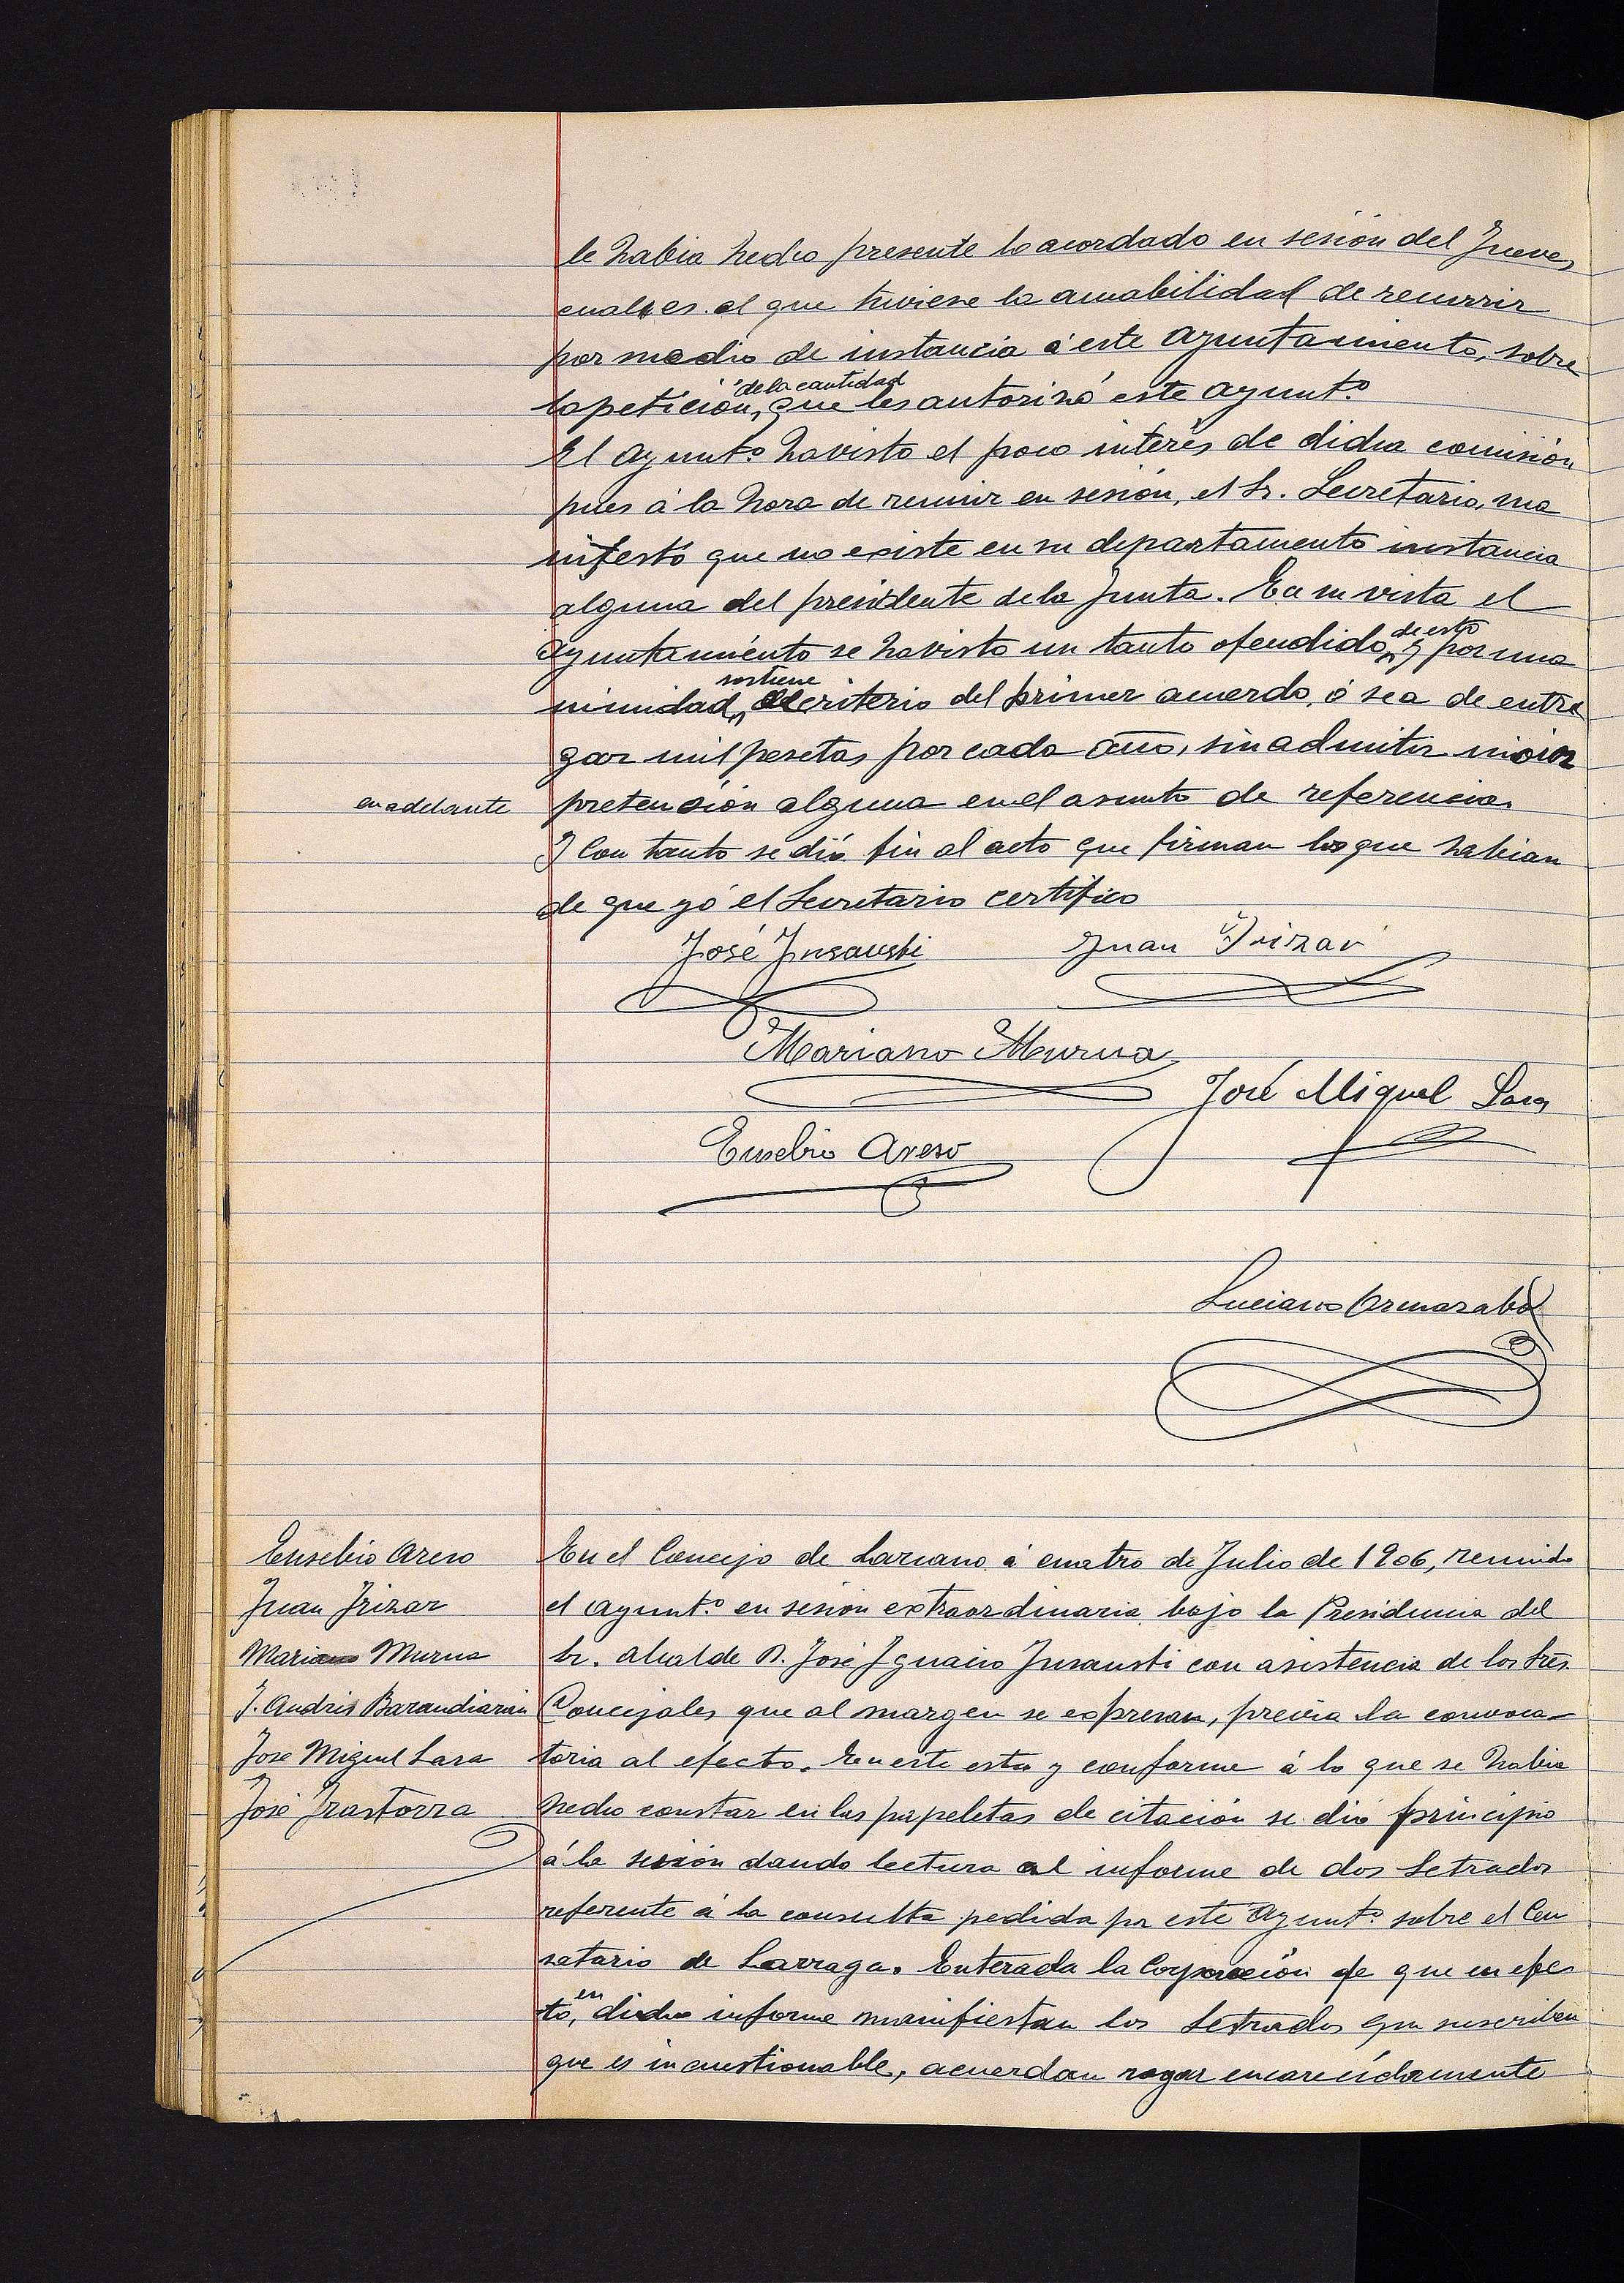 le habia hecho presente lo acordado en sesión del Jueves
cual es el que tuviese la amabilidad de recurrir
por medio de instancia á este Ayuntamiento, sobre
la petición, de la cantidad que les autorizó este Ayunt.º
El Ayunt.º ha visto el poco interés de dicha comisión
pues á la hora de reunir en sesión, el Sr. Secretario, ma
nifestó que no existe en su departamento instancia
alguna del presidente de la Junta. En su vista el
Ayuntamiento se ha visto un tanto ofendido de esto y por una
nimidad, sostiene el criterio del primer acuerdo, ó sea de entre
gar mil pesetas por cada año, sin admitir
en adelante pretención alguna en el asunto de referencia.
Y Con tanto se dió fin al acto que firman los que habian
de que yó el Secretario certifico
José Insausti Juan Irizar
Mariano Murua
José Miguel Lasa
Eusebio Areso
Luciano Ormazabal
Eusebio Areso
Juan Irizar
Mariano Murua
J. Andrés Barandiarán
José Miguel Lasa
José Irastorza
En el Concejo de Lazcano á cuatro de Julio de 1906, reunido
el Ayunt.º en sesión extraordinaria bajo la Presidencia del
Sr. Alcalde D. José Ignacio Insausti con asistencia de los Sres
Concejales que al margen se expresan, previa la convoca-
toria al efecto. En este esta y conforme á lo que se habia
hecho constar en las papeletas de citación se dió principio
á la sesión dando lectura al informe de dos Letrados
referente á la consulta pedida por este Ayunt.º sobre el Cen
satario de Larraga. Enterada la Corporación de que en efec
to, en dicho informe manifiestan los Letrados que suscriben
que es incuestionable, acuerdan rogar encarecidamente